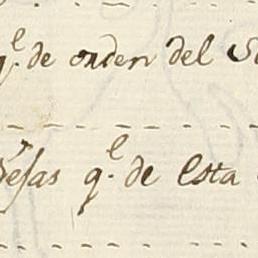 q.^l de orden del S
Pesas q.^l de Esta